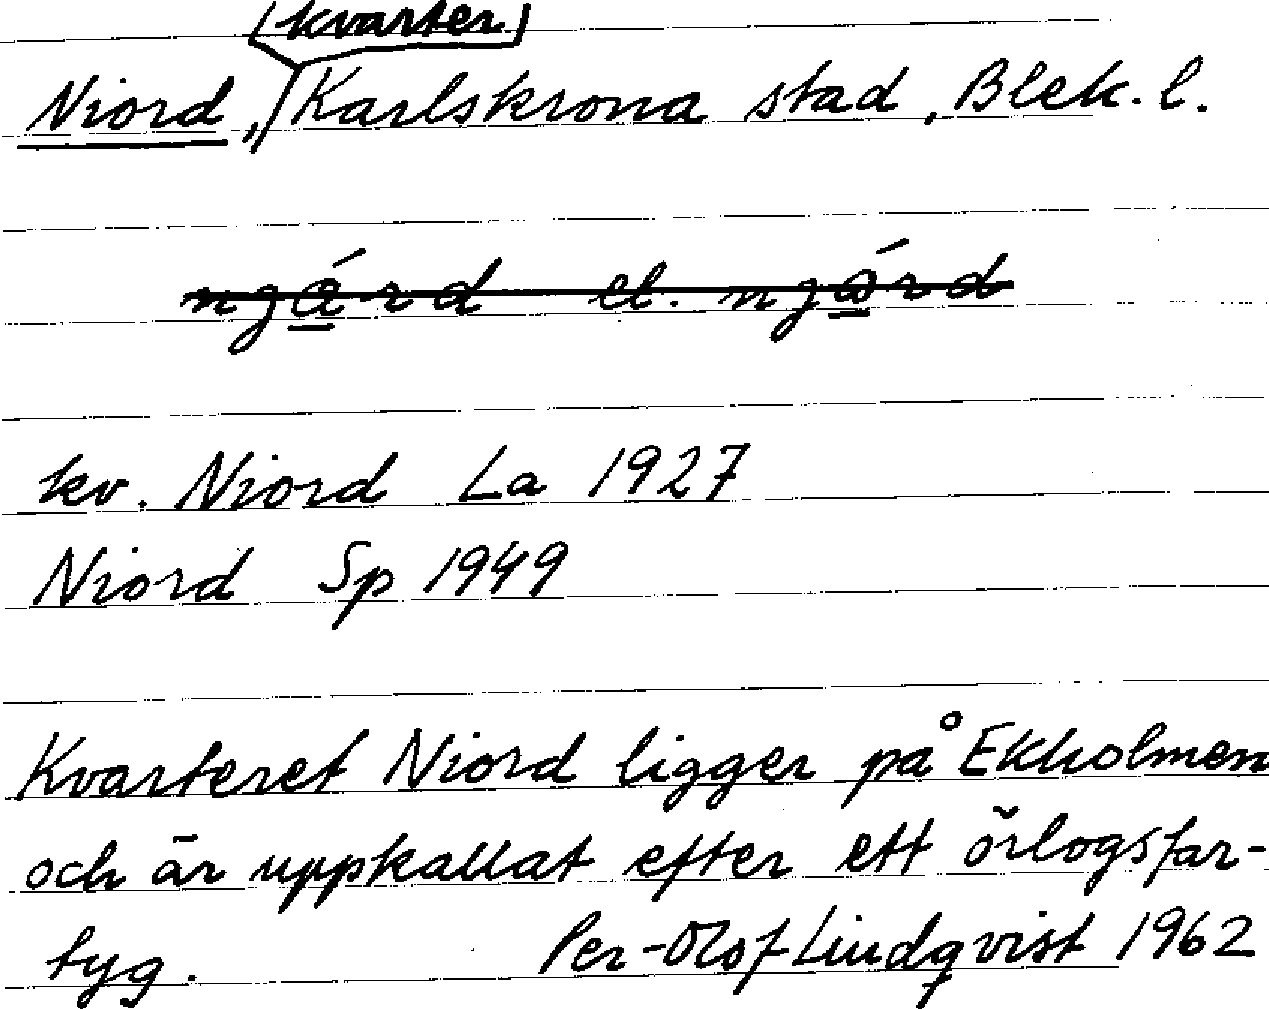 kvarter
Niord, Karlskrona stad, Blek. l.
el.
kv. Niord La 1927
Niord Sp 1949
Kvarteret Niord ligger på Ekholmen
och är uppkallat efter ett örlogsfar-
tyg. Per-Olof Lindqvist 1962